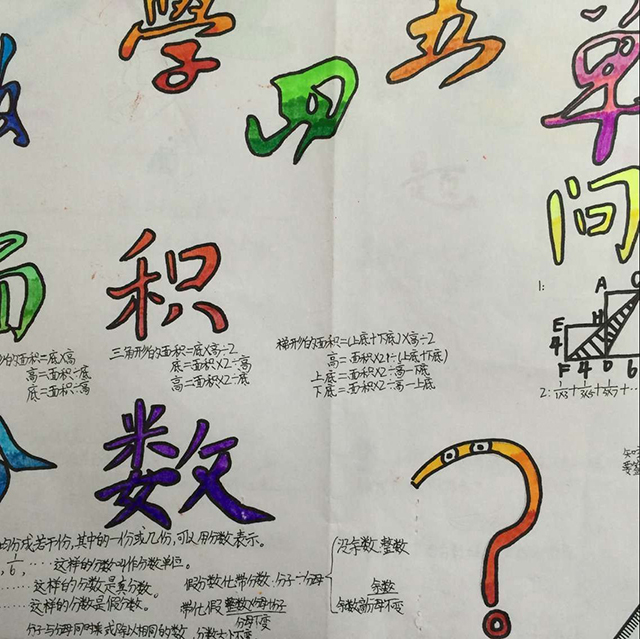 數學四五單
面积
问
形的面积=底X高
高=面积÷底
底=面积÷高
三角形的面积=底X高÷2
底=面积X2÷高
高=面积X2÷底
梯形的面积=(上底+下底)X高÷2
高=面积X2÷(上底+下底)
上底=面积X2÷高-下底
下底=面积X2÷高-上底
1:
A
E
H
4
F 4 D 6
2: 1/1X3+1/3X5+1/5X7+…
分数
均分成若干份,其中的一份或几份,可以用分数表示。
1/6, ……这样的分数叫作分数单位。
……这样的分数是真分数。
……这样的分数是假分数。
分子与分母同时乘或除以相同的数,分数大小不变
假分数化带分数:分子÷分母
没余数:整数
余数
分母不变
带化假 整数X分母+分子
分母不变
?